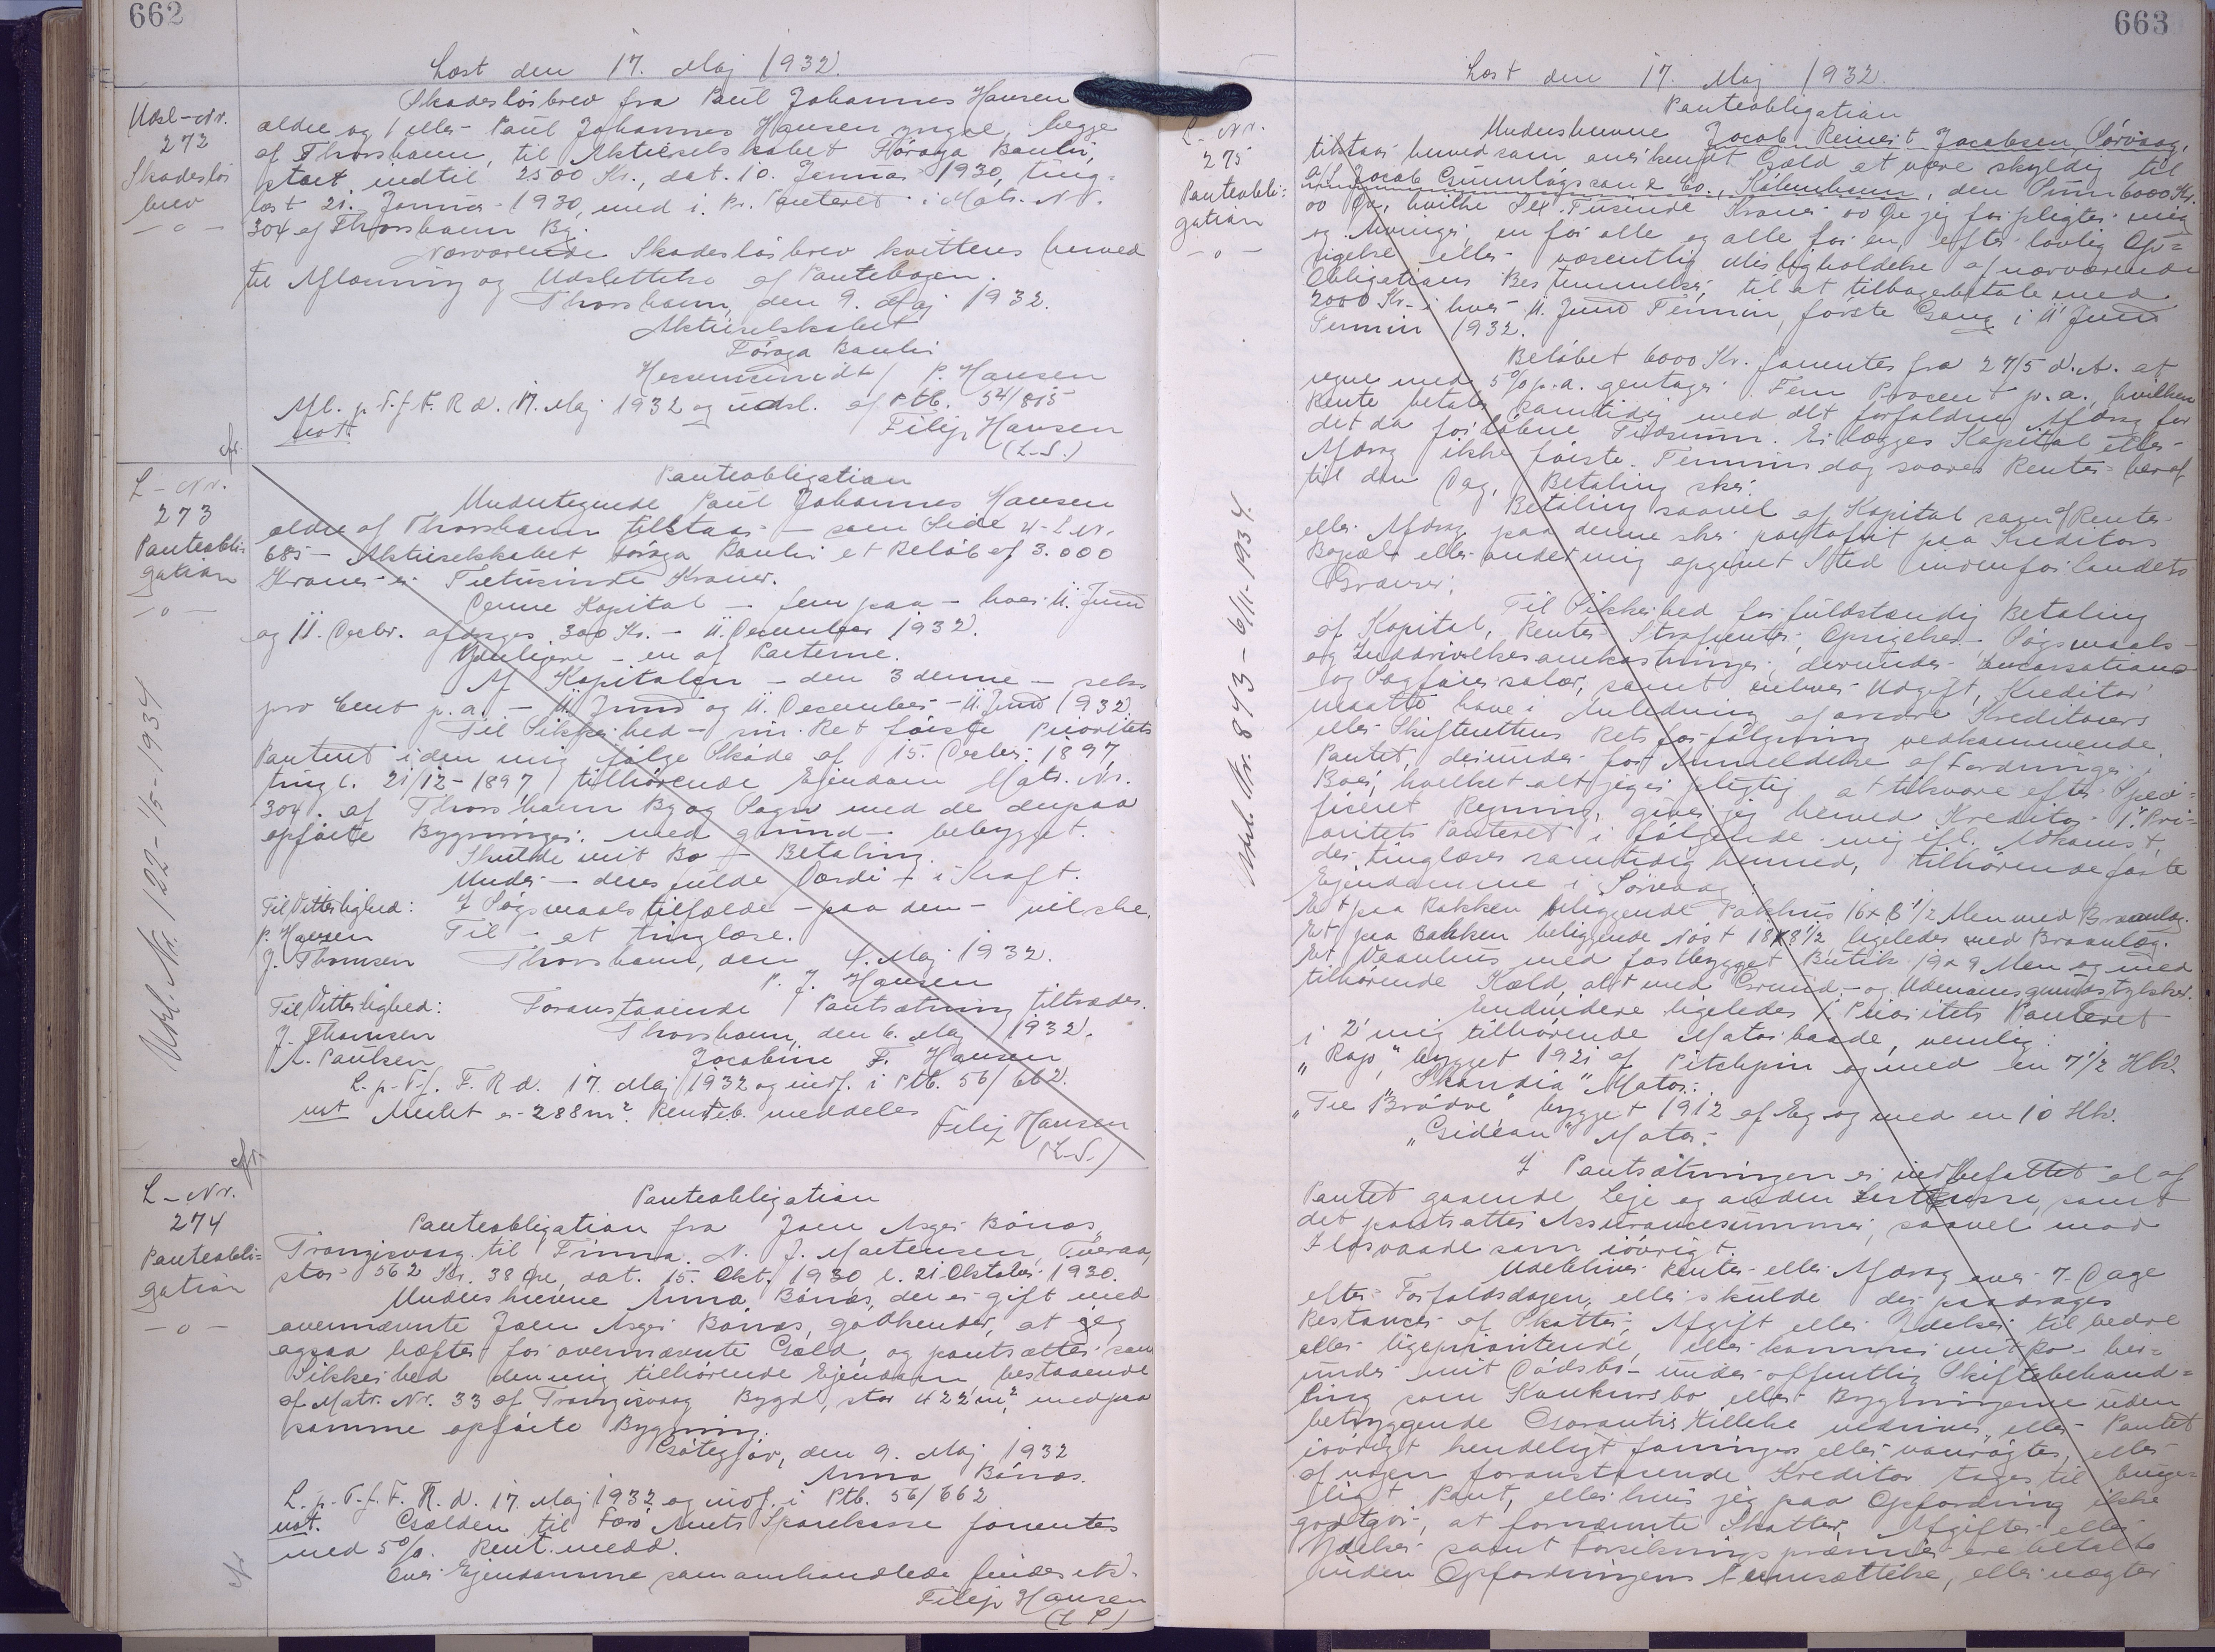 662
Læst den 17. Maj 1932.
Udsl-Nr.
272
Skadesløs
brev
Skadesløsbrev fra Paul Johannes Hansen
ældre og/eller Paul Johannes Hansen yngre, begge
af Thorshavn, til Aktieselskabet Föroya Banki,
stort indtil 2500 Kr., dat. 10. Januar 1930, ting-
læst 21. Januar 1930, med i. Pr. Panteret i Matr. Nr.
304 af Thorshavn Bg.
Nærværende Skadesløsbrev kvitteres herved
til Aflæsning og Udslettelse af Pantebogen.
Thorshavn, den 9. Maj 1932.
Aktieselskabet
Föroya Banki
/ P. Hansen
Afl. p. T. f. F. R d. 17. Maj 1932 og udsl. af Ptb. 54/815
not.
Filip Hansen
(L.S.)
L-Nr.
273
Panteobli-
gation
Udsl. Nr. 122 - 1/5 - 1934
Panteobligation
Undertegnede Paul Johannes Hansen
ældre af Thorshavn tilstaar - som Side 4 - L Nr.
685 - Aktieselskabet Föroya Banki et Beløb af 3.000
Kroner er Tretusinde Kroner.
Denne Kapital - fem paa - hver 11. Juni
og 11. Decbr. afdrages 300 Kr. - 11. December 1932.
Yderligere - en af Parterne.
Af Kapitalen - den 3 denne - seks
pro Cent p.a. - 11. Juni og 11. December - 11. Juni 1932.
Til Sikkerhed - min Ret første Prioritets
Panteret i den mig ifølge Skøde af 15. Decbr. 1897,
tingl. 21/12-1897, tilhørende Ejendom Matr. Nr.
304. af Thorshavn By og Sogn med de derpaa
opførte Bygninger, med grund - bebygget.
Skulde mit Bo - Betaling.
Under - deres fulde Værdi - i Kraft.
I Søgsmaalstilfælde - paa den - vil ske.
Til - at tinglæse.
Thorshavn, den 4. Maj 1932.
P. J. Hansen
Til Vitterlighed:
P. Hansen
J. Thomsen
Foranstaaende Pantsætning tiltrædes.
Thorshavn, den 6. Maj 1932.
Jacobine F. Hansen
Til Vitterlighed:
J. Thomsen
A. Paulsen
L. p. T. f. F. R d. 17. Maj 1932 og indf. i Ptb. 56/662.
not Arealet er 288 m². Rentb. meddeles
Filip Hansen
(L.S.)
L-Nr.
274
Panteobli=
gation
Panteobligation
Panteobligation fra Joen Asger Bönøs,
Trongisvaag til Firma N. J. Mortensen, Tveraa,
stor 562 Kr. 38 Øre, dat. 15. Okt. 1930 l. 21. Oktober 1930.
Underskrevne Anna Bönøs, der er gift med
ovennævnte Joen Asger Bönøs, godkender, at jeg
ogsaa hæfter for ovennævnte Gæld, og pantsætter som
Sikkerhed den mig tilhørende Ejendom bestaaende
af Matr. Nr. 33 af Trongisvaag Bygd, stor 422 m², med paa
samme opførte Bygning.
den 9. Maj 1932
Anna Bönøs.
L. p. T. f. F. R. d. 17. Maj 1932 og indf. i Ptb. 56/662
not. Gælden til Færø Amts Sparekasse forrentes
med 5%. Rent. medd.
Over Ejendomme som omhandlede findes
Filip Hansen
(L S)
663
Læst den 17. Maj 1932.
L-Nr.
275
Panteobli=
gation
Udsl. Nr. 843 - 6/11-1934.
Panteobligation
Underskrevne Jacob Reinert Jacobsen, Sörvaag,
tilstaar herved som anerkendt Gæld at være skyldig til
A/S Jacob Gunnløgsson & Co., København, den Sum 6000 Kr.
00 Øre, hvilke Sex Tusinde Kroner 00 Øre jeg forpligter mig
og Arvinger, en for alle og alle for en, efter lovlig Op=
sigelse eller væsentlig Misligholdelse af nærværende
Obligations Bestemmelser til at tilbagebetale med
2000 Kr. i hver 11. Juni Termin, første Gang i 11' Juni
Termin 1932.
Beløbet 6000 Kr. forrentes fra 27/5 d.A. at
regne med 5% p.a. gentager Fem Procent p.a., hvilken
Rente betales samtidig med det forfaldne Afdrag for
det da forløbne Tidsrum. Erlægges Kapital eller
Afdrag ikke første Termins dag svares Renter heraf
til den Dag, Betaling sker.
Betaling saavel af Kapital som af Renter
eller Afdrag paa denne sker portofrit paa Kreditors
Bopæl eller andet mig opgivet Sted indenfor Landets
Grænser.
Til Sikkerhed for fuldstændig Betaling
af Kapital, Renter, Strafrenter, Opsigelses-, Søgsmaals-
og Inddrivelsesomkostninger, derunder Incassations
og Sagførersalær, samt enhver Udgift, Kreditor
maatte have i Anledning af andre Kreditorers
eller Skifterettens Retsforfølgning vedkommende
Pantet, derunder for Anmeldelse af Fordringer i
Boer, hvilket alt jeg er pligtig at tilsvare efter Speci=
ficeret Regning, giver jeg herved Kreditor 1' Pri=
oritets Panteret i følgende mig ifl. Adkomst,
der tinglæses samtidig hermed, tilhørende faste
Ejendomme i Sörvaag
Et paa Bakken beliggende Pakhus 16 x 8 1/2 Alen med Braanlæg.
Et paa Bakken beliggende Nøst 18 x 8 1/2 ligeledes med Braanlæg.
Et Vaanhus med fastbygget Butik 19 x 9 Alen og med
tilhørende Kæld, alt med Grund- og Udenomsgrundstykker.
Endvidere ligeledes 1' Prioritets Panteret
i 2 mig tilhørende Motorbaade, nemlig:
"Rojo," bygget 1921 af Pitchpin og med en 7 1/2 Hk.
"Skandia" Motor.
"Tre Brødre," bygget 1912 af Eg og med en 10 Hk.
"Gideon" Motor.
I Pantsætningen er indbefattet al af
Pantet gaaende Leje og anden Indtægt, samt
det pantsattes Assurancesummer, saavel mod
Ildsvaade som iøvrigt.
Udebliver Renter eller Afdrag over 7 Dage
efter Forfaldsdagen, eller skulde der paadrages
Restancer af Skatter, Afgift eller Ydelser til bedre
eller ligeprioriterede, eller kommer mit Bo her=
under mit Dødsbo under offentlig Skiftebehand=
ling som Konkursbo eller Bygningerne uden
betryggende Garantistillelse nedrives, eller Pantet
iøvrigt kendeligt forringes eller vanrøgtes, eller
af nogen foranstaaende Kreditor tages til bruge=
ligt Pant, eller hvis jeg paa Opfordring ikke
godtgør, at fornævnte Skatter, Afgifter eller
Ydelser samt Forsikringspræmier ere betalte
inden Opfordringens Iværksættelse, eller nægter